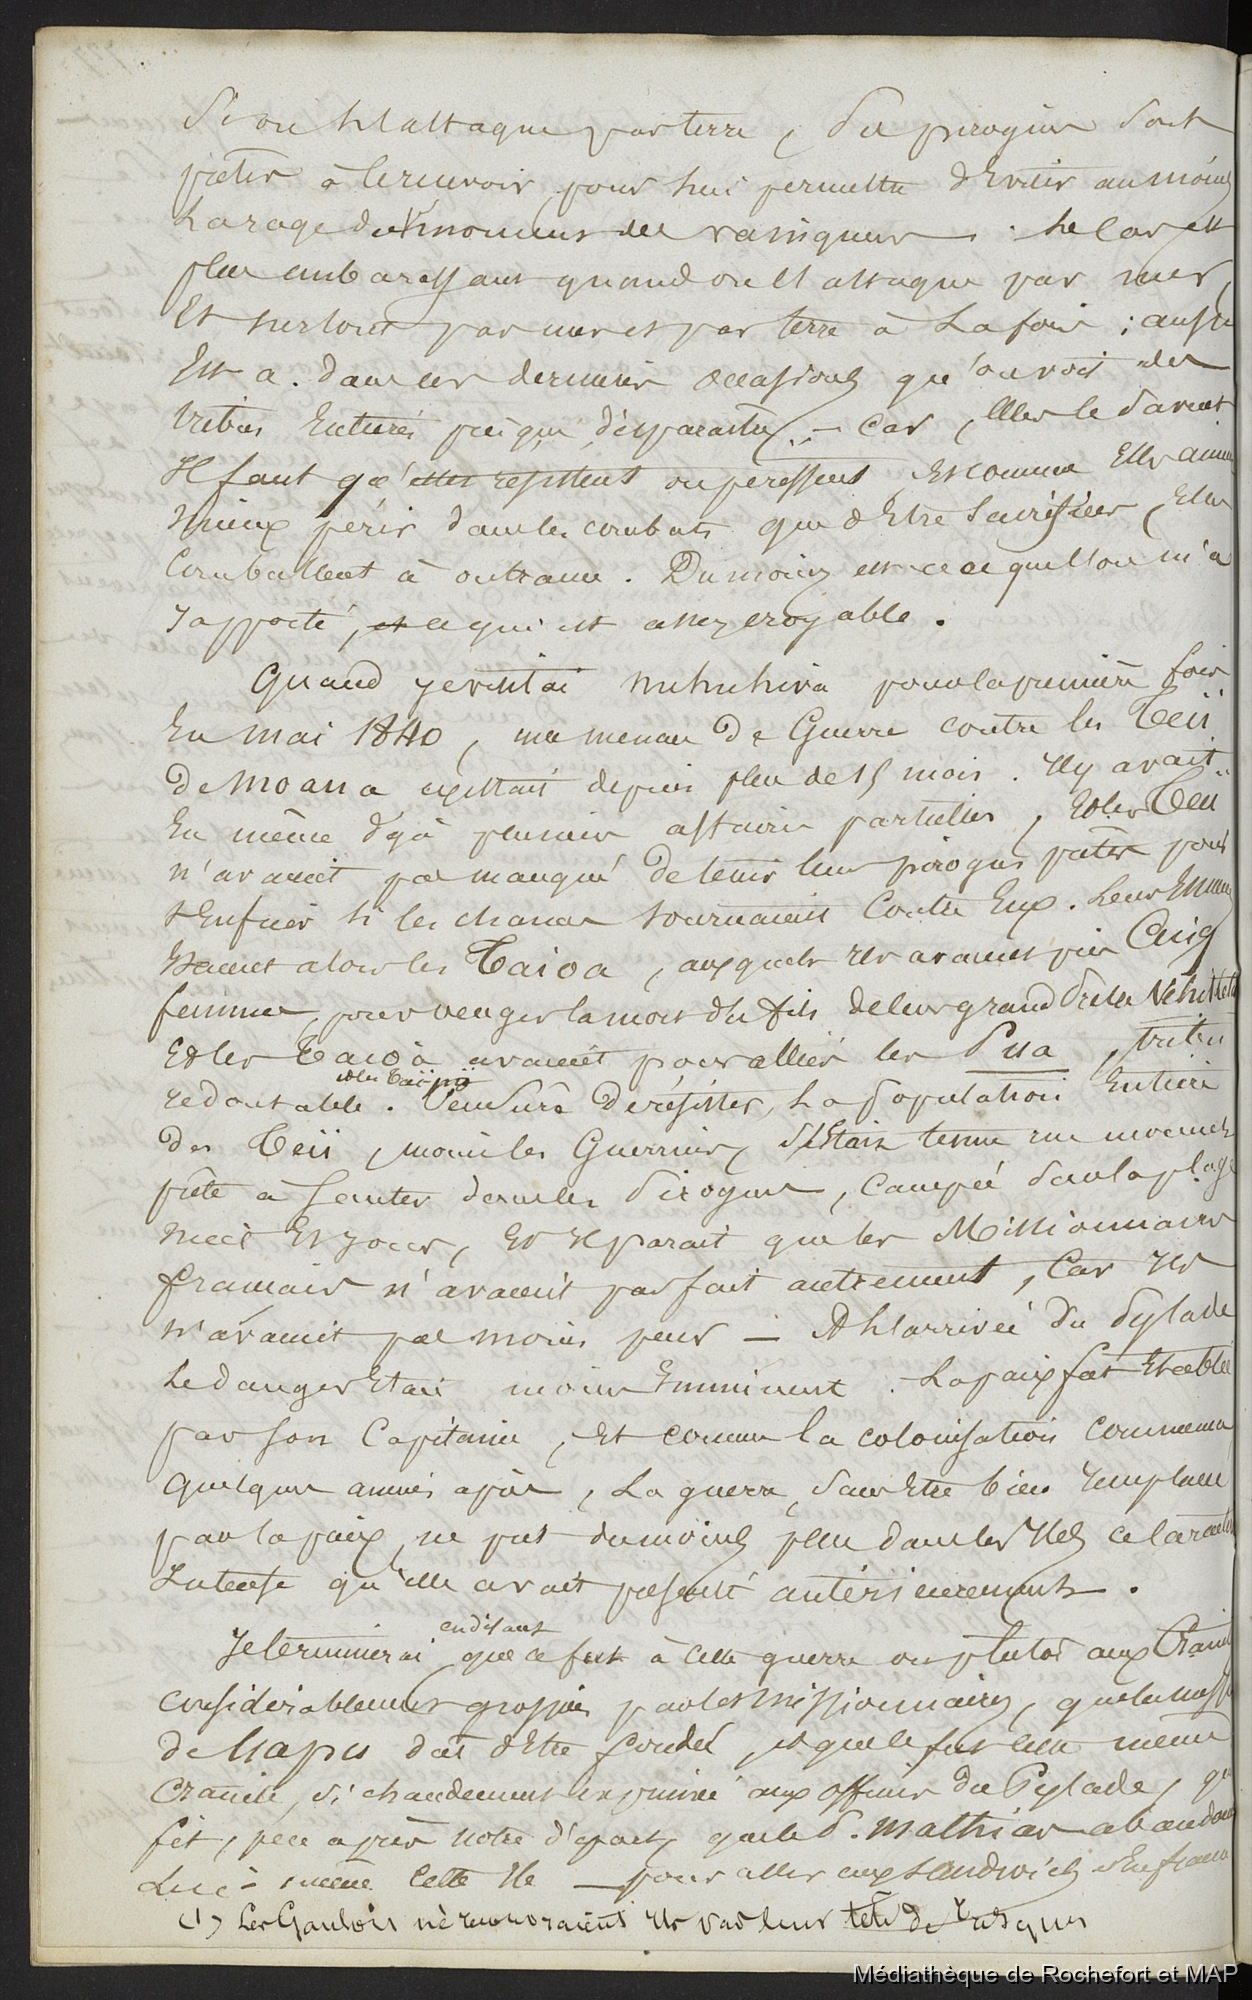 Si on l'attaque par terre, des pirogues sont
prêtes à le recevoir, pour lui permettre d'éviter au moins
la rage des vainqueurs. Le cas est
plus embarassant quand on l'attaque par mer,
et surtout par mer et par terre à la fois ; aussi
est-ce dans ces dernieres occasions qu'on voit des
tribus entières presque disparaitre - car, elles le savent
il faut qu'elles resistent ou perissent et comme elles aiment
mieux périr dans les combats que d'être sacrifiées, elles
combattent à outrance. Du moins est-ce ce que l'on m'a
rapporté, et ce qui est assez croyable.
Quand je visitai Nuhuhiva pour la première fois
en mai 1840, une menace de guerre contre les Teii
de Moana existait depuis plus de 15 mois. Il y avait
eu même déjà plusieurs affaires partielles, et les Teii
n'avaient pas manqué de tenir leurs pirogues prêtes pour
s'enfuir si les chances tournaient contre eux. Leurs ennemis
étaient alors les Taioa, auxquels ils avaient pris cinq
femmes, pour venger la mort du fils de leur grand Prêtre
et les Taioa avaient pour alliés les Pua, tribu
et les Taiipii
redoutable. de résister, la population entière
des Teii, moins les guerriers, s'était tenue
prête à sauter dans les pirogues, campée sur la plage
nuit et jour, et il parait que les Missionnaires
français n'avaient pas fait autrement, car ils
n'avaient pas moins peur - A l'arrivée du Pylade
le danger était moins imminent. La paix fut établie
par son Capitaine, et comme la colonisation commença
quelques années après, la guerre, sans être bien remplacée
par la paix, ne prit du moins plus dans les îles ce caractère
intense qu'elle avait présenté antérieurement.
Je terminerai en disant que ce fut à cette guerre ou plutôt aux craintes
considérablement grossies par les missionnaires, que la mission
de Uapu dut d'être fondée, et que ce fut cette même
crainte, si chaudement exprimée aux officiers du Pylade, qui
fit, peu après notre départ, que le P. Mathias abandonna
lui-même cette île pour aller aux Sandwich
(1) Les Gaulois